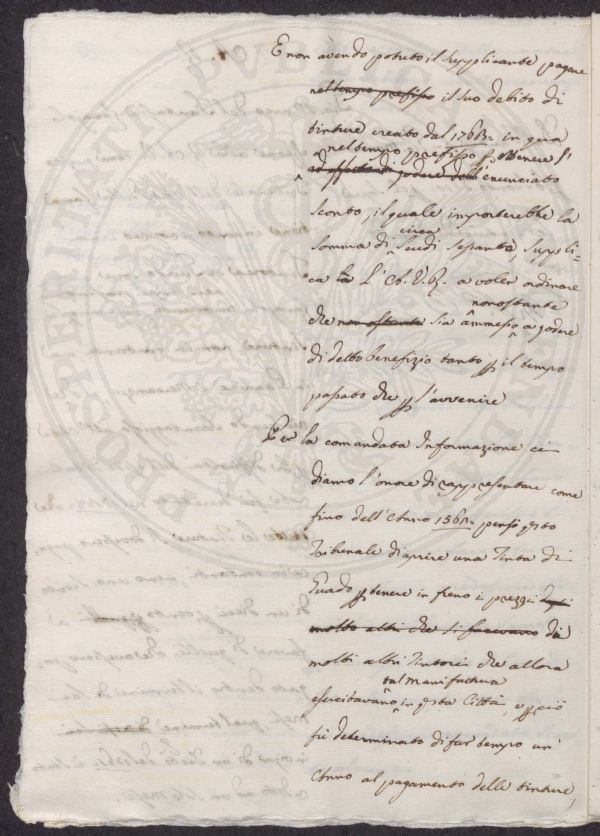 E non avendo potuto il Supplicante pagare
nel tempo prefisso il suo debito di
tinture creato dal 176 in qua
nel tempo prefisso ꝑ ottenere l'
ad effetto di godere dell'enunciato
sconto, il quale importerebbe la
somma di circa Scudi sepanta, suppli=
ca la L'Cb. V. R. a voler ordinare
nonostante
che nonostante sia ammesso a godere
di detto benefizio tanto ꝑ il tempo
passato che ꝑ l'avvenire
Per la comandata Informazione ci
diamo l'onore di rappresentare come
fino dell'Anno 156 pensò qsto
Tribunale di aprire una Tinta di
Guado ꝑ tenere in freno i prezzi di
molto altri che si facevano di
molti altri Tintori che allora
tal manifattura
esercitavano in qsta Città, e ꝑ ciò
fù determinato di far tempo un'
Anno al pagamento delle tinture,
PROSPERITATI PUBLICAE